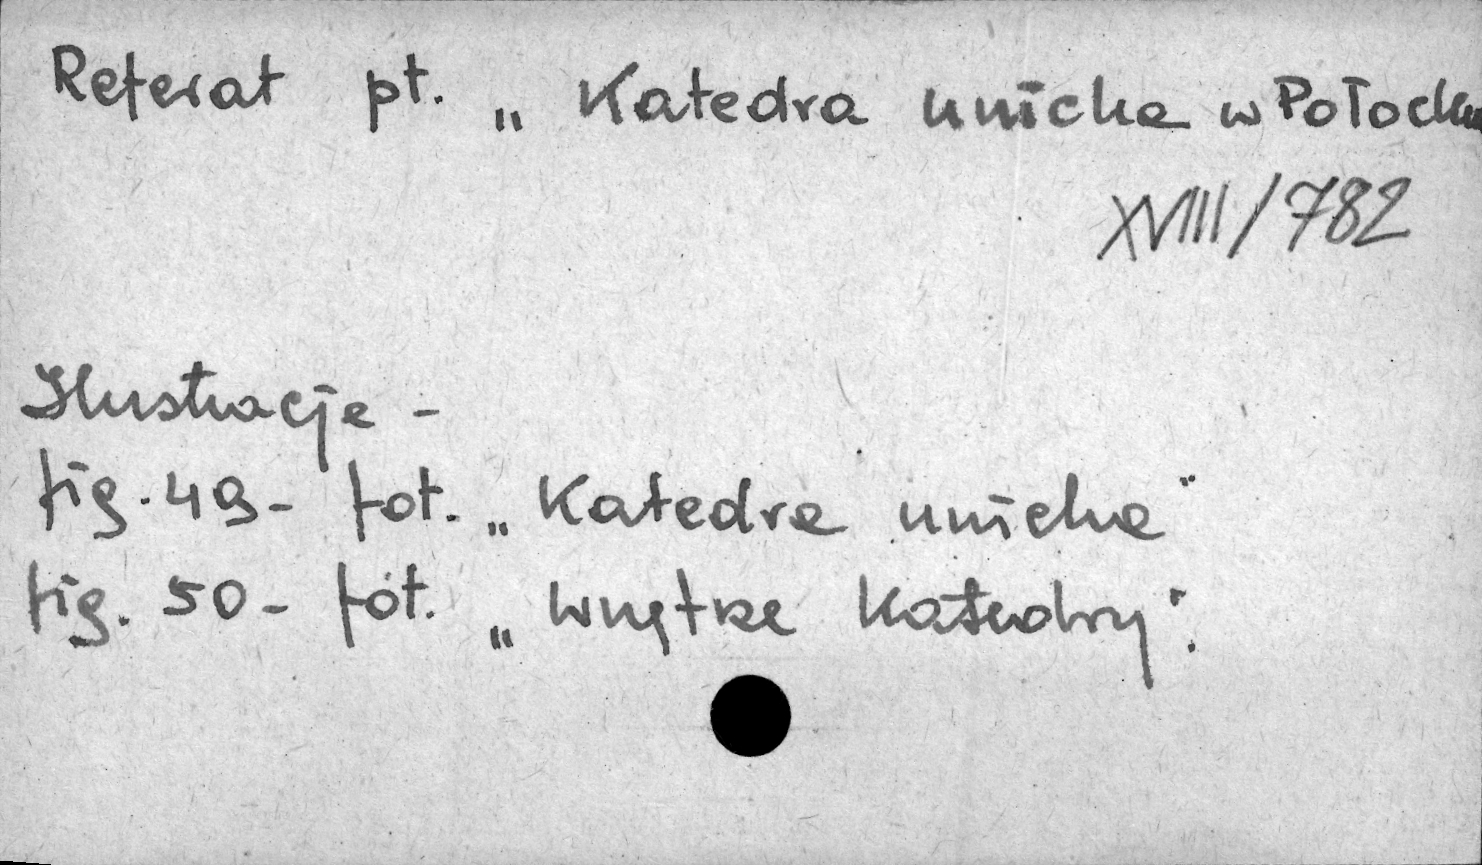 Referat pt. „Katedra unicka w Połocku
XVIII/782
Ilustracje -
fig. 49 - fot. „Katedra unicka"
fig. 50 - fot. „Wnętrze katedry".